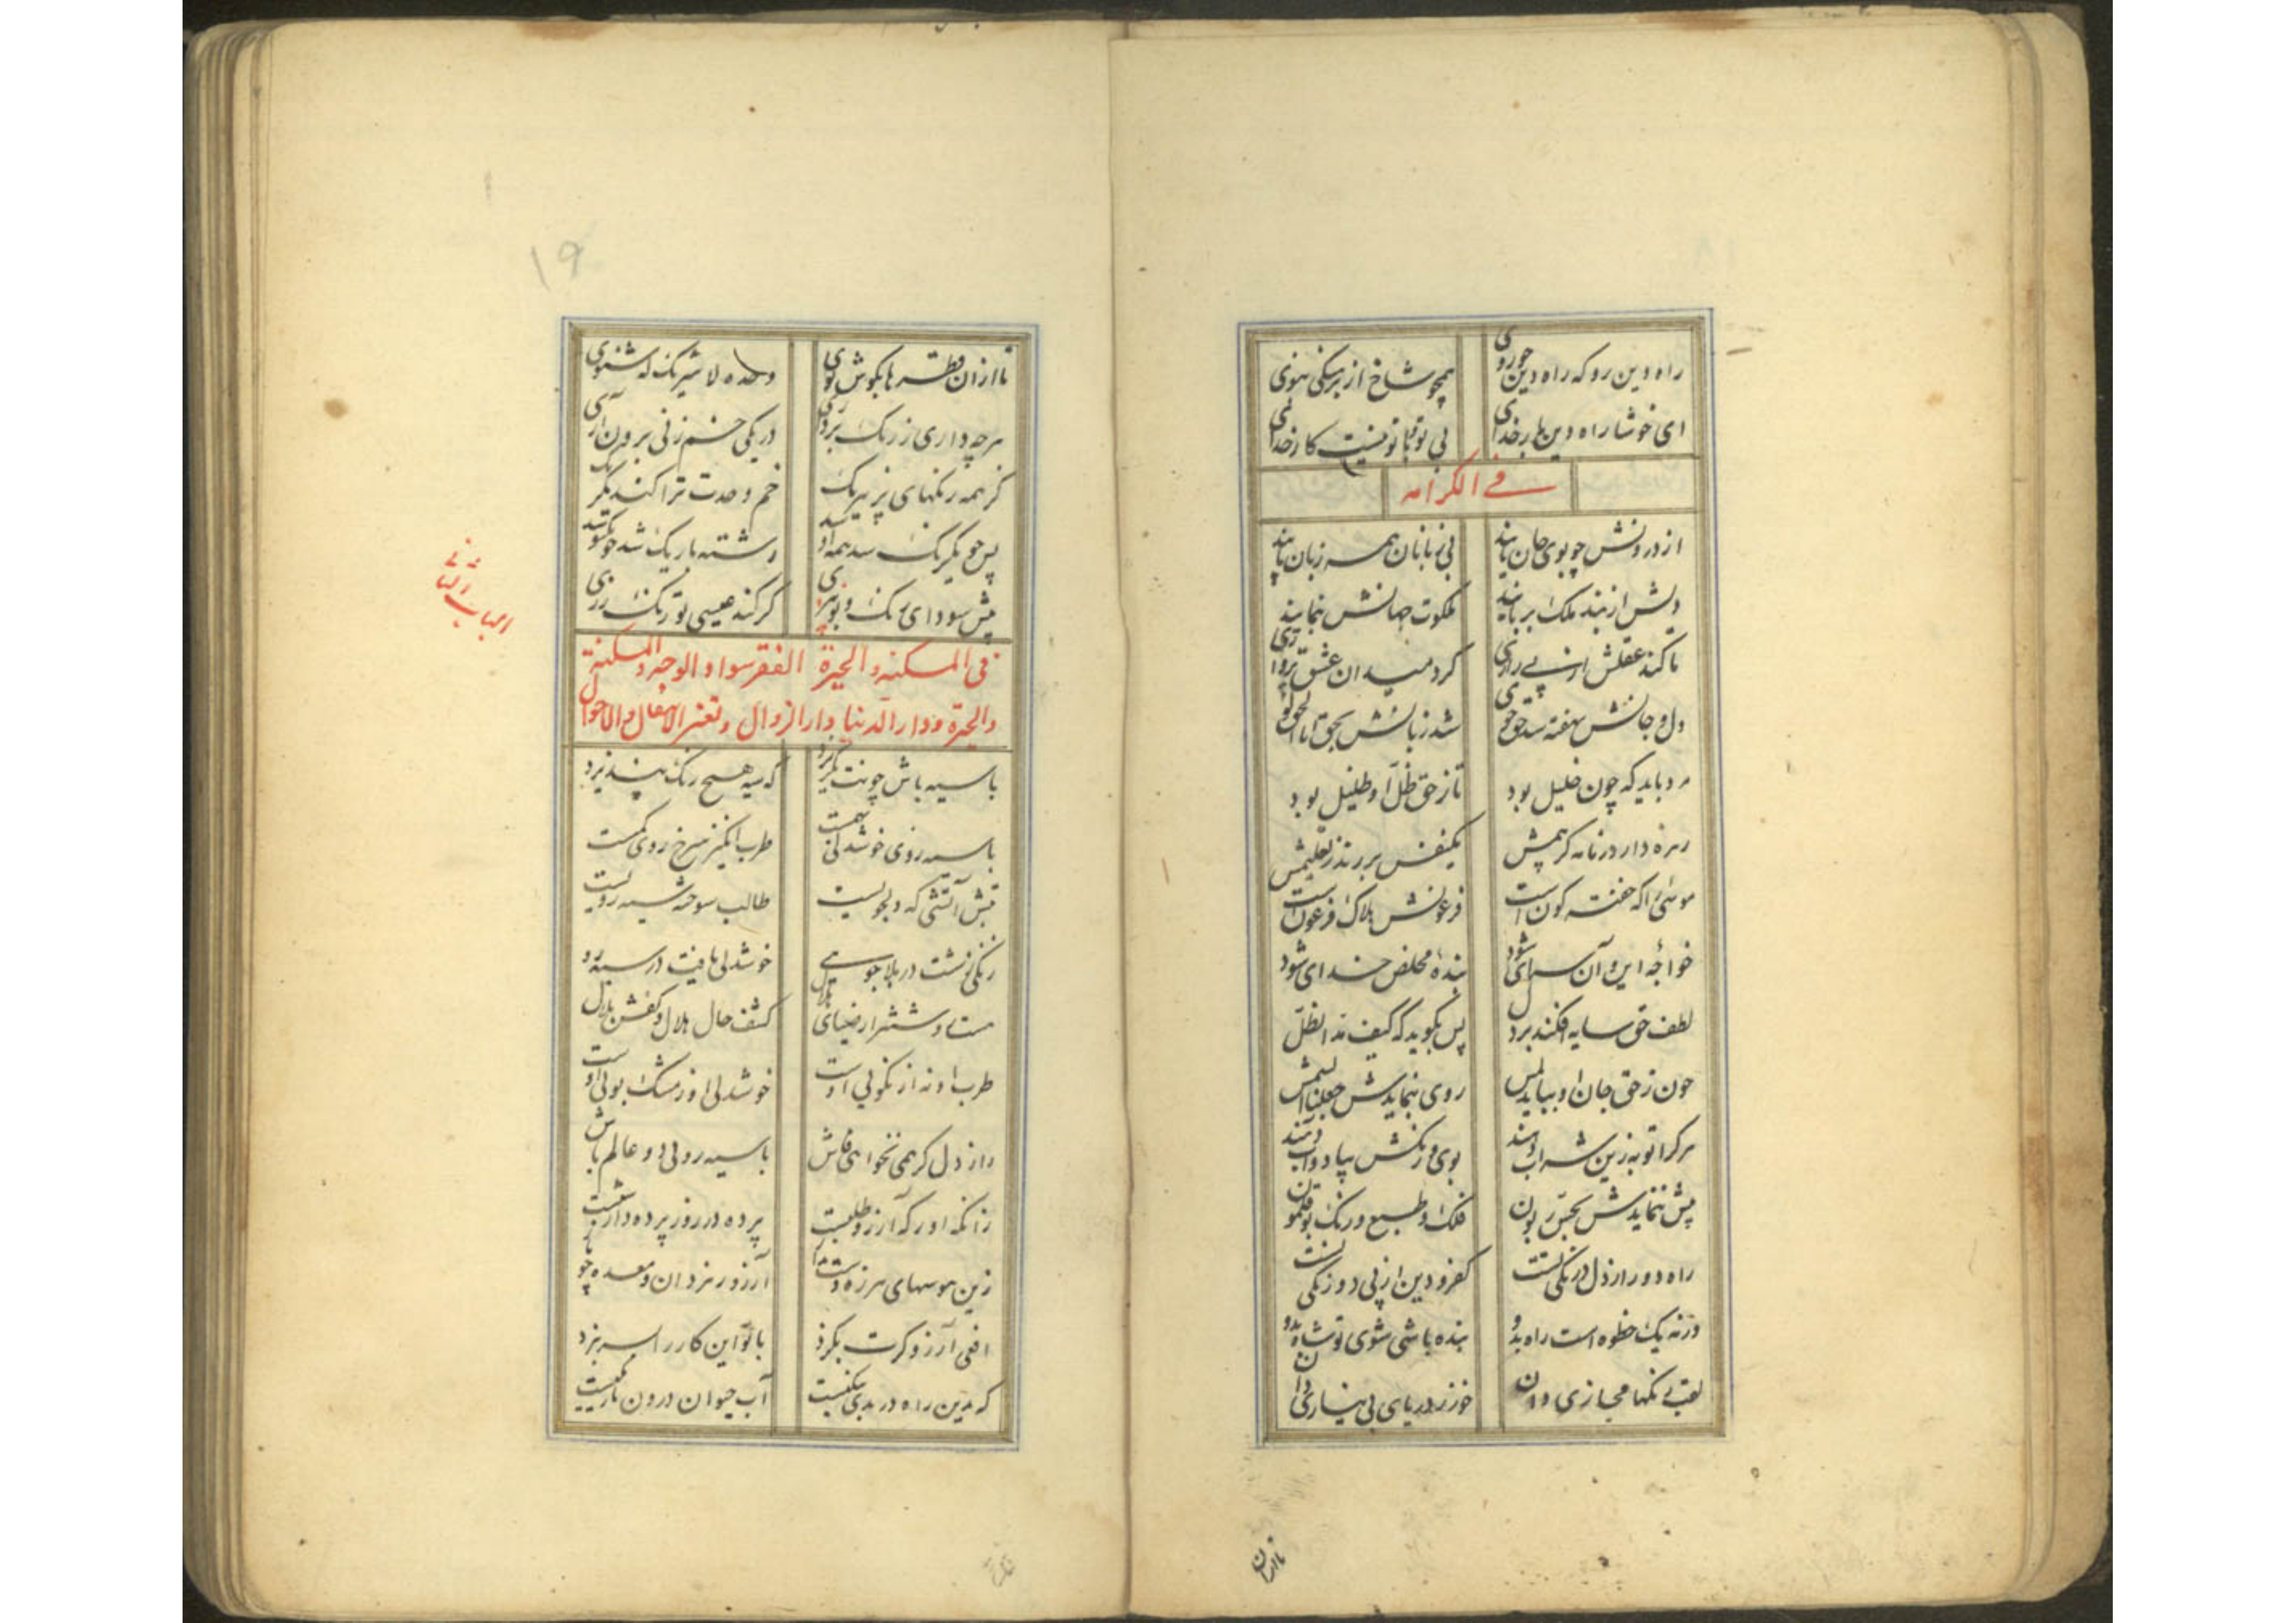 راه دین رو که راه دین چو روی
همچو شاخ از برهنگی ننوی
ای خوشا راه دین با رخدای
بی تو با تو نیست کار خدای
فی الکرامه
از درونش چو بوی جان یابند
بی زبانان همه زبان یابند
دلش از بند ملک برباید
ملکوت جهانش بنماید
تا کند عقلش از پی رازی
گرد میدان عشق پروازی
دل و جانش نهفته شد حق جوی
شد زبانش بحق انا الحق گوی
مرد باید که چون خلیل بود
تا ز حق ظل او ظلیل بود
زهره دارد زمانه کز بیمش
یکنفس بر زند ز تعلیمش
موسی را که خفته کون است
فرعونش هلاک فرعون است
خواجه این و آن سرای شود
بنده مخلص خدای شود
لطف حق سایه افکند بر دل
پس بگوید که کیف مد الظل
چون ز حق جان او بیابد لمس
روی بنمایدش جعلنا الشمس
هر کرا توبه زین شراب دهند
بوی و رنگش بباد و آب دهند
پیش ننمایدش بحس زبون
فلک و طبع و رنگ بوقلمون
راه دور از دل درنگی تست
کفر و دین از پی دو رنگی تست
ورنه یک خطوه است راه بدو
بنده باشی شوی تو شاه بدو
لقب رنگها مجازی دان
خور ز دریای بی نیازی دان
تا ازان
تا ازان قطره ها بگوش توی
وحده لا شریک له شنوی
هرچه داری ز رنگ بر داری
در یکی خم زنی برون آری
کز همه رنگهای پر نیرنگ
خم وحدت ترا کند یکرنگ
پس چو یکرنگ شد همه او شد
رشته باریک شد چو یکتو شد
پیش سودای رنگ و بوبپزی
گر کند عیسی تو رنگ رزی
فی المسکنة و الحیرة الفقر سواد الوجه و المسکنة
والحیرة و دار الدنیا دار الزوال و تغیر الانتقال و الاحوال
الباب الثانی
با سیه باش چونت نگزیرد
که سیه هیچ رنگ نپذیرد
با سیه روی خوشدلی بهمست
طرب انگیز سرخ روی کمست
پیش آتشی که دلجویست
طالب سوخته سیه رویست
زنگی زشت در بلاجویی
خوشدلی یافت در سیه رویی
کشف حال هلال و کفش بلال
طرب او نه از نکویی اوست
خوشدلی او ز مشک بویی اوست
راز دل گر همی نخواهی فاش
با سیه رویی دو عالم باش
زانکه او را که آرزو طلبست
پرده در روز پرده دار شبست
زین هوسهای هرزه دست بدار
آرزو زهر دان و معده چو مار
افعی آرزو کرت بگزد
با تو این کار را بسر نبرد
که درین راه در بدی نیکیست
آب حیوان درون تاریکیست